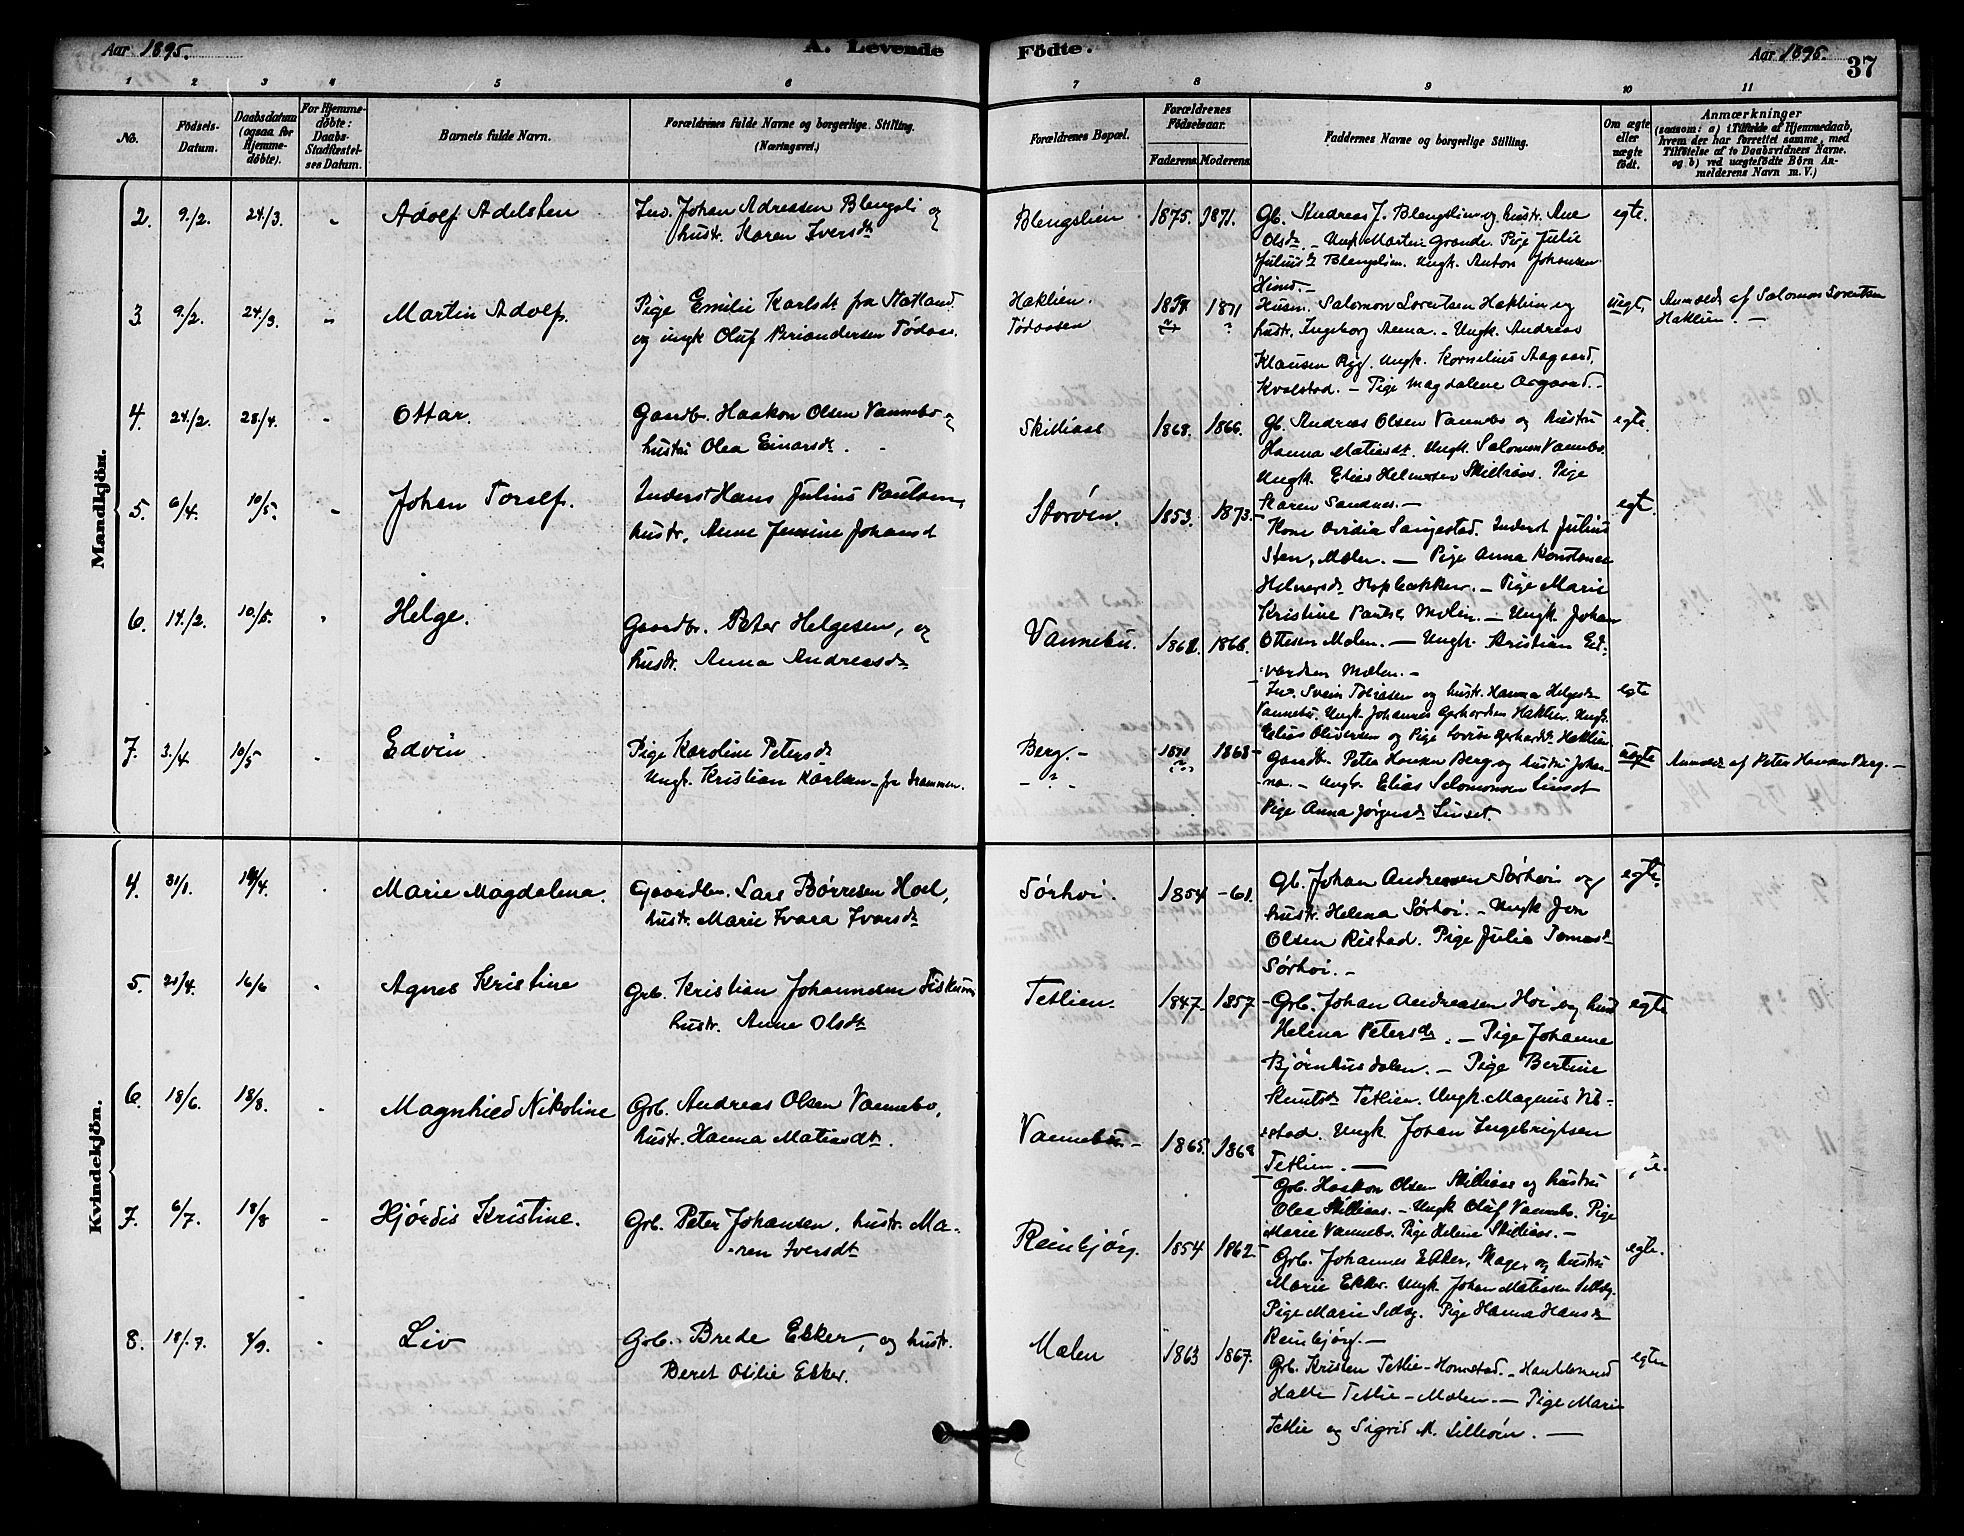 Aar 1895.
A. Levende
Födte.
Aar 1895.
37
1 2 3 4 5 6 7 8 9 10 11
No.
Födsels-
Datum.
Daabsdatum
(ogsaa for
Hjemme-
döbte).
For Hjemme-
döbte:
Daabs-
Stadfæstel-
ses Datum.
Barnets fulde Navn.
Forældrenes fulde Navne og borgerlige Stilling.
(Næringsvei.)
Forældrenes Bopæl.
Forældrenes
Födselsaar.
Faderens. Moderens.
Faddernes Navne og borgerlige Stilling.
Om ægte
eller
uægte
födt.
Anmærkninger
(saasom: a) i Tilfælde af Hjemmedaab,
hvem der har forrettet samme, med
Tilföielse af to Daabsvidners Navne.
og b) ved uægtefödte Börn An-
melderens Navn m. V.)
Mandkjön.
2. 9./2. 24./3. „ Adolf Adelsten
Ind. Johan Adreasen Blengsli og
hustr. Karen Iversdt
Blengslien 1875. 1871.
Gb. Andreas J. Blengslien og hustr. Ane
Olsdr. - Ungk Martin Grande. Pige Julie
Juliusdr Blengslien. Ungk. Anton Johansen
egte.
3. 9./2. 24./3. „ Martin Adolf.
Pige Emilie Karlsdt fra
og ungk Oluf
Haklien.
Tødaasen
1871
?
Husm. Salomon Lorentsen Haklien og
hustr. Ingeborg Anna. - Ungk. Andreas
Klausen Ryg. Ungk. Kornelius Aagaard,
Kvalstad. - Pige Magdalene Aagaard. -
uegt.
Anmeldt af Salomon Lorentsen
Haklien. -
4. 24./2. 28./4. „ Ottar.
Gaardbr. Haakon Olsen Vannebo og
hustru Olea Einarsdt.
Skilliaas 1868. 1866.
Gb. Andreas Olsen Vannebo og hustru
Hanna Matiasdt. Ungk. Salomon Vannebo.
Ungk. Elias Helmersen Skilliaas. Pige
Karen Sandnes. -
egte.
5. 6/4. 10/5. „ Johan Toralf.
Inderst Hans Julius Paulsen,
hustr. Anne Jensine Johansd
Storøen. 1853. 1873.
Kone Ovidia Inderst Julius
Sten, Mælen. - Pige Anna Konstanse
Helmersdr Hopbækken. - Pige Marie
Kristine Paulsd. Mælen. - Ungk. Johan
Ottesen Mælen. - Ungk. Kristian Ed-
vardsen Mælen. -
egt.
6. 14./2. 10./5. „ Helge.
Gaardbr. Peter Helgesen, og
hustr. Anna Andreasdr
Vannebu. 1866.
Ind. Svein Tobiasen og hustr. Hanna Helgesdr
Vannebu. Ungk. Johannes Gerhardsen Haklien. Ungk.
Elias Olidersen og Pige Lovise Gerhardsdr. Haklien
egte
7. 3./4 10/5 „ Edvin
Pige Karoline Petersdr
Ungk. Kristian Karlsen - fra Drammen.
Berg. -
- ? -
1868 -
Gaardbr. Peter Hansen Berg og hustru Johan-
na. - Ungk. Elias Salomonsen Linset
Pige Anna Jørgensdr Linset.
uegte
Anmeldt af Peter Hansen Berg. -
Kvindekjön.
4. 31/1. Marie Magdalena.
Gaardbr. Lars Børresen Hoel,
hustr. Marie Ivara Ivarsdt
Sørhoi. 1854 -61.
Gb. Johan Andreasen Sørhoi og
hustr. Helena Sørhoi. - Ungk Jon
Olsen Ristad. Pige Julie Tomasdr
Sørhoi. -
egte.
5. 21/4. 16/6 „ Agnes Kristine
Grb. Kristian Johannesen Fiskum
hustr. Anne Olsdt
Tetlien. 1847. 1857
- Grb. Johan Andreasen Hoi og hust
Helena Petersdr. - Pige Johanne
Bjørnhusdalen. - Pige Bertine
Knutsdr Tetlien. Ungk. Magnus
Ungk. Johan Ingebrigtsen
Tetlien. -
egte
6. 18/6. 18/8. „ Magnhied Nikoline
Grb. Andreas Olsen Vannebo,
hustr. Hanna Matiasdt.
Vannebu - 1865.
Grb. Haakon Olsen Skilliaas og hustru
Olea Skilliaas. - Ungk Oluf Vannebo. Pige
Marie Vannebo. Pige Helene Skilliaas. -
7. 6/7. 18/8 „ Hjørdis Kristine.
Grb. Peter Johansen, hustr. Ma-
ren Iversdt
Reinbjørg. 1854 1862
- Grb. Johannes Ekker, Skage og hustru
Marie Ekker. Ungk. Johan Matiasen
Pige Marie Pige Hanna Hansdr
Reinbjørg. -
egte.
8. 18/.7. 8/9. „ Liv
Grb. Brede Ekker, og hustr.
Beret Otilie Ekker.
Mælen 1863 1867.
Grb. Kristen Tetlie - Homstad. -
Tetlie - Mælen. - Pige Marie
Tetlie og Sigrid M. Lilleøen. -
egte